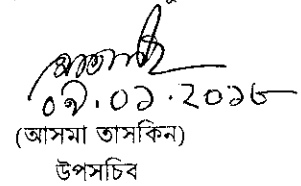 ০৭.০১.২০১৮
(আসমা তাসকিন)
উপসচিব